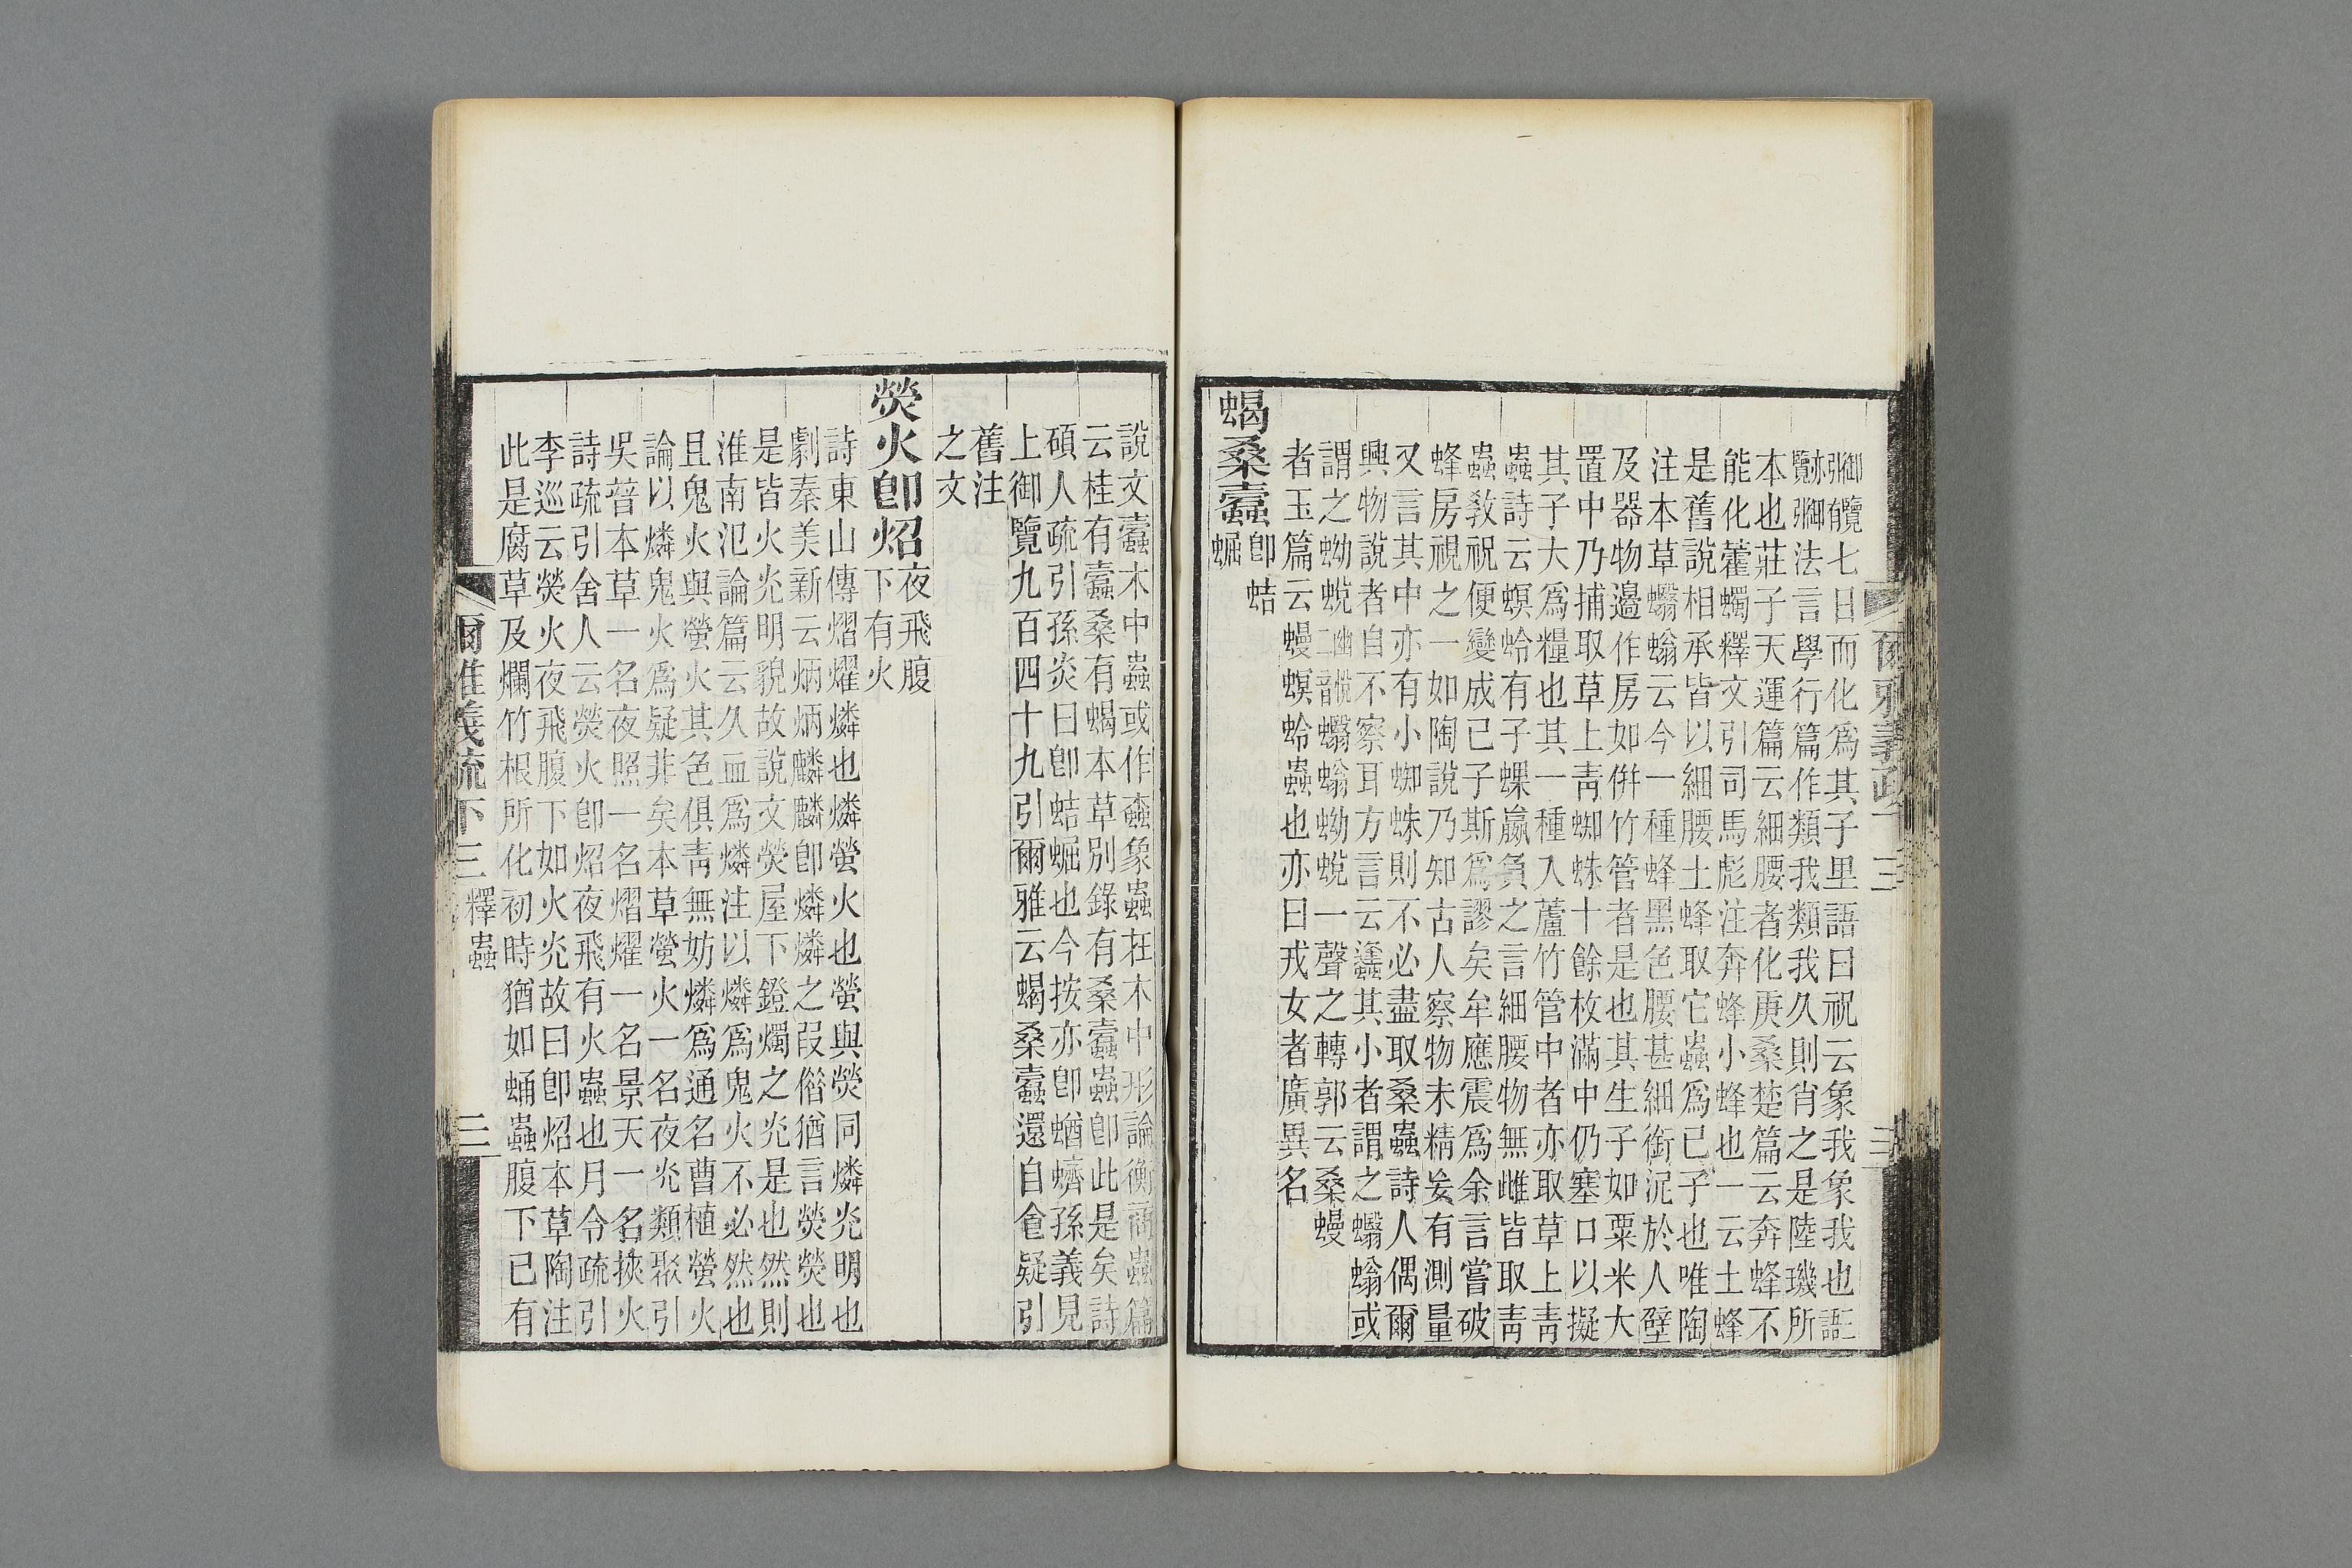 御覽引有七日而化爲其子里語曰祝云象我象我也三語
亦御覽引法言學行篇作類我類我久則肖之是陸璣所
本也莊子天運篇云細腰者化庚桑楚篇云奔蜂不
能化藿蠋釋文引司馬彪注奔蜂小蜂也一云土蜂
是舊說相承皆以細腰土蜂取它蟲爲已子也唯陶
注本草蠮螉云今一種蜂黑色腰甚細銜泥於人壁
及器物邊作房如併竹管者是也其生子如粟米大
置中乃捕取草上靑蜘蛛十餘枚滿中仍塞口以擬
其子大爲糧也其一種入蘆竹管中者亦取草上靑
蟲詩云螟蛉有子蜾蠃負之言細腰物無雌皆取靑
蟲敎祝便變成已子斯爲謬矣牟應震爲余言嘗破
蜂房視之一如陶說乃知古人察物未精妄有測量
又言其中亦有小蜘蛛則不必盡取桑蟲詩人偶爾
興物說者自不察耳方言云蠭其小者謂之蠮螉或
謂之蚴蛻幽悅二音蠮螉蚴蛻一聲之轉郭云桑蟃
者玉篇云蟃螟蛉蟲也亦曰戎女者廣異名
蝎桑蠹卽蛣𧌑
說文蠹木中蟲或作螙象蟲在木中形論衡商蟲篇
云桂有蠹桑有蝎本草別錄有桑蠹蟲卽此是矣詩
碩人疏引孫炎曰卽蛣𧌑也今按亦卽蝤蠐孫義見
上御覽九百四十九引爾雅云蝎桑蠹還自食疑引
舊注
之文
熒火卽炤夜飛腹下有火
詩東山傳熠燿燐也燐螢火也螢與熒同燐光明也
劇秦美新云炳炳麟麟卽燐燐之叚偕猶言熒熒也
是皆火光明貌故說文熒屋下鐙燭之光是也然則
淮南氾論篇云久血爲燐注以燐爲鬼火不必然也
且鬼火與螢火其色俱靑無妨燐爲通名曹植螢火
論以燐鬼火爲疑非矣本草螢火一名夜光類聚引
吳普本草一名夜照一名熠燿一名景天一名挾火
詩疏引舍人云熒火卽炤夜飛有火蟲也月令疏引
李巡云熒火夜飛腹下如火光故曰卽炤本草陶注
此是腐草及爛竹根所化初時猶如蛹蟲腹下已有
爾雅義疏下三 釋蟲 三